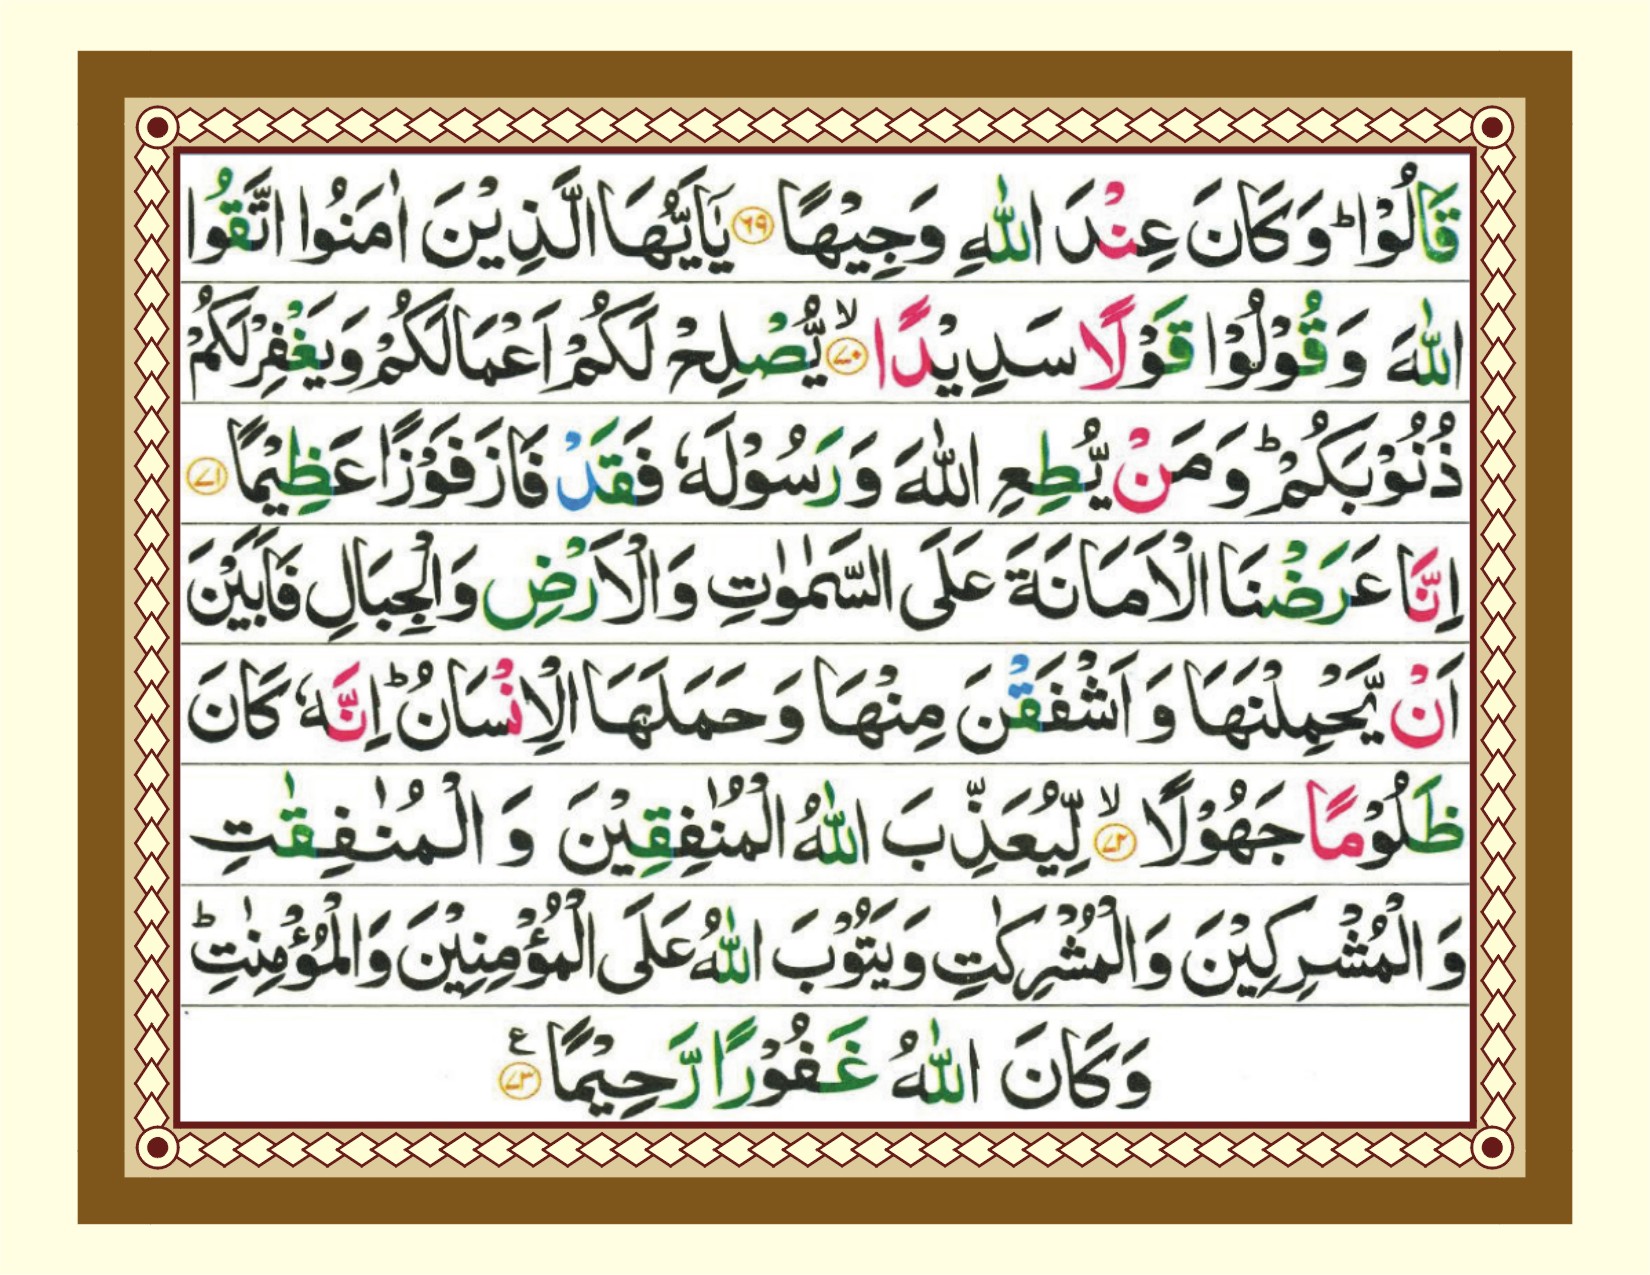 قَالُوْا ؕ وَكَانَ عِنْدَ اللّٰهِ وَجِيْهًا ﴿۶۹﴾ يٰۤاَيُّهَا الَّذِيْنَ اٰمَنُوا اتَّقُوا
اللّٰهَ وَقُوْلُوْا قَوْلًا سَدِيْدًا ۙ﴿۷۰﴾ يُّصْلِحْ لَكُمْ اَعْمَالَكُمْ وَيَغْفِرْ لَكُمْ
ذُنُوْبَكُمْ ؕ وَمَنْ يُّطِعِ اللّٰهَ وَرَسُوْلَهٗ فَقَدْ فَازَ فَوْزًا عَظِيْمًا ﴿۷۱﴾
اِنَّا عَرَضْنَا الْاَمَانَةَ عَلَى السَّمٰوٰتِ وَالْاَرْضِ وَالْجِبَالِ فَاَبَيْنَ
اَنْ يَّحْمِلْنَهَا وَاَشْفَقْنَ مِنْهَا وَحَمَلَهَا الْاِنْسَانُ ؕ اِنَّهٗ كَانَ
ظَلُوْمًا جَهُوْلًا ۙ﴿۷۲﴾ لِّيُعَذِّبَ اللّٰهُ الْمُنٰفِقِيْنَ وَالْمُنٰفِقٰتِ
وَالْمُشْرِكِيْنَ وَالْمُشْرِكٰتِ وَيَتُوْبَ اللّٰهُ عَلَى الْمُؤْمِنِيْنَ وَالْمُؤْمِنٰتِ ؕ
وَكَانَ اللّٰهُ غَفُوْرًا رَّحِيْمًا ﴿۷۳﴾ ع